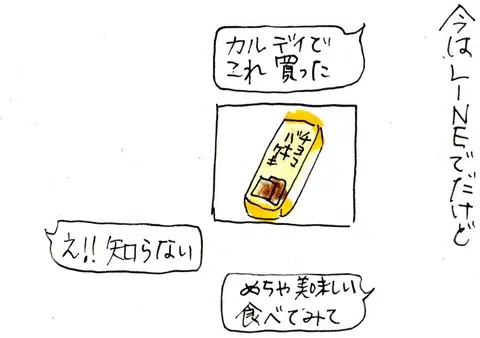 今はLINEでだけど
カルディで
これ買った
チョコ
バキ
ケキ
え!!知らない
めちゃ美味しい
食べてみて